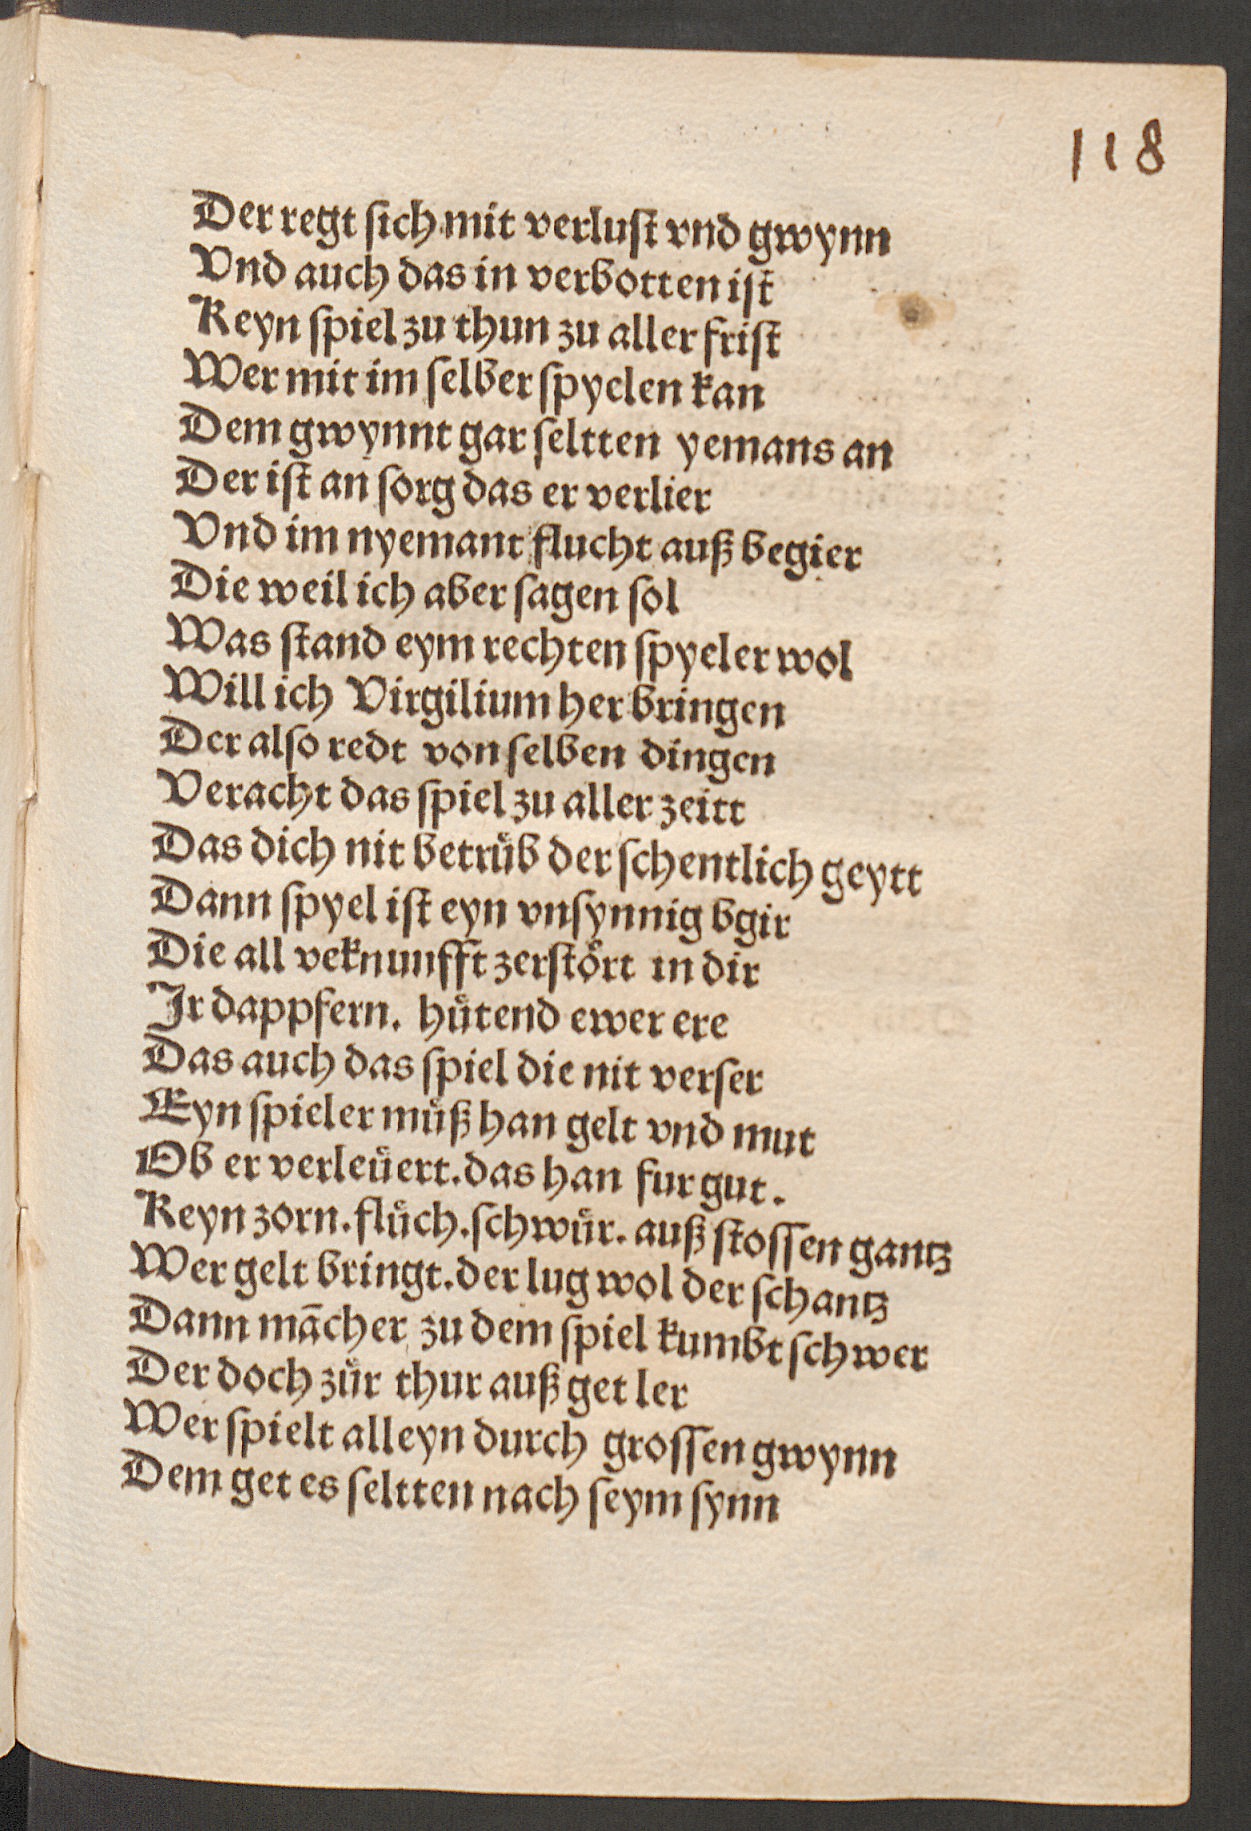 118
Der regt ſich mit verluſt vnd gwynn
Vnd auch das in verbotten iſt
Keyn ſpiel zu thun zu aller friſt
Wer mit im ſelber ſpyelen kan
Dem gwynnt gar ſeltten yemans an
Der iſt an ſorg das er verlier
Vnd im nyemant flucht auß begier
Die weil ich aber ſagen ſol
Was ſtand eym rechten ſpyeler wol
Will ich Virgilium her bringen
Der alſo redt von ſelben dingen
Veracht das ſpiel zu aller zeitt
Das dich nit betrüb der ſchentlich geytt
Dann ſpyel iſt eyn vnſynnig bgir
Die all veknunfft zerſtört in dir
Ir dappfern. hütend ewer ere
Das auch das ſpiel die nit verſer
Eyn ſpieler müß han gelt vnd mut
Ob er verleüert. das han fur gut.
Keyn zorn. flüch. ſchwür. auß ſtoſſen gantz
Wer gelt bringt. der lug wol der ſchantz
Dann mācher zu dem ſpiel kumbt ſchwer
Der doch zür thur auß get ler
Wer ſpielt alleyn durch groſſen gwynn
Dem get es ſeltten nach ſeym ſynn